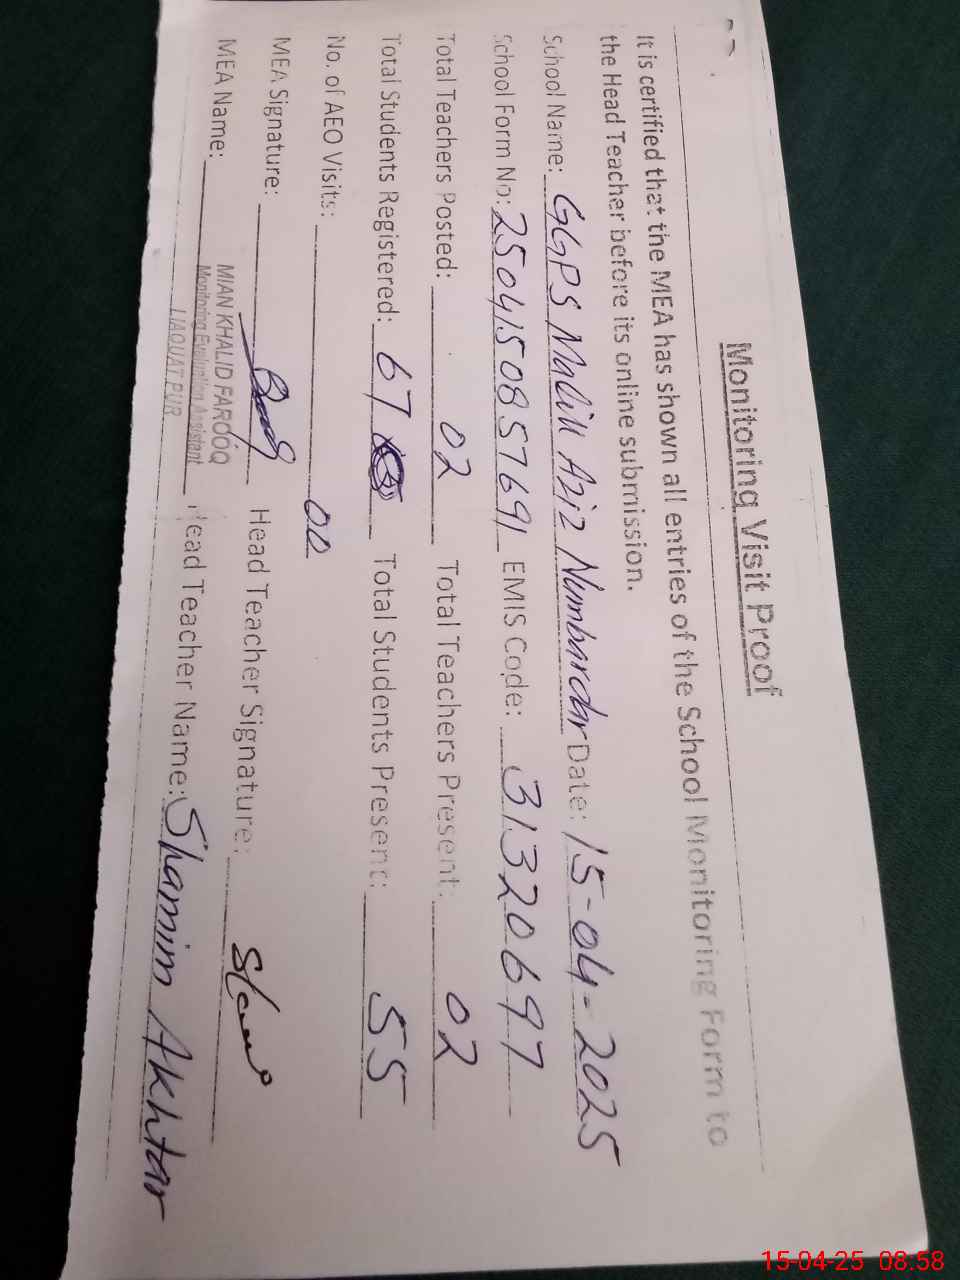 Monitoring Visit Proof
It is certified that the MEA has shown all entries of the School Monitoring Form to
the Head Teacher before its online submission.
School Name: GGPS Malik Aziz Numbardar Date: 15-04-2025
School Form No: 2504150857691 EMIS Code: 31320697
Total Teachers Posted: 02 Total Teachers Present: 02
Total Students Registered: 67 Total Students Present: 55
No. of AEO Visits: 00
MEA Signature: Head Teacher Signature:
MEA Name: MIAN KHALID FAROOQ Head Teacher Name: Shamim Akhtar
Monitoring Evaluation Assistant
LIAQUAT PUR
15-04-25 08:58